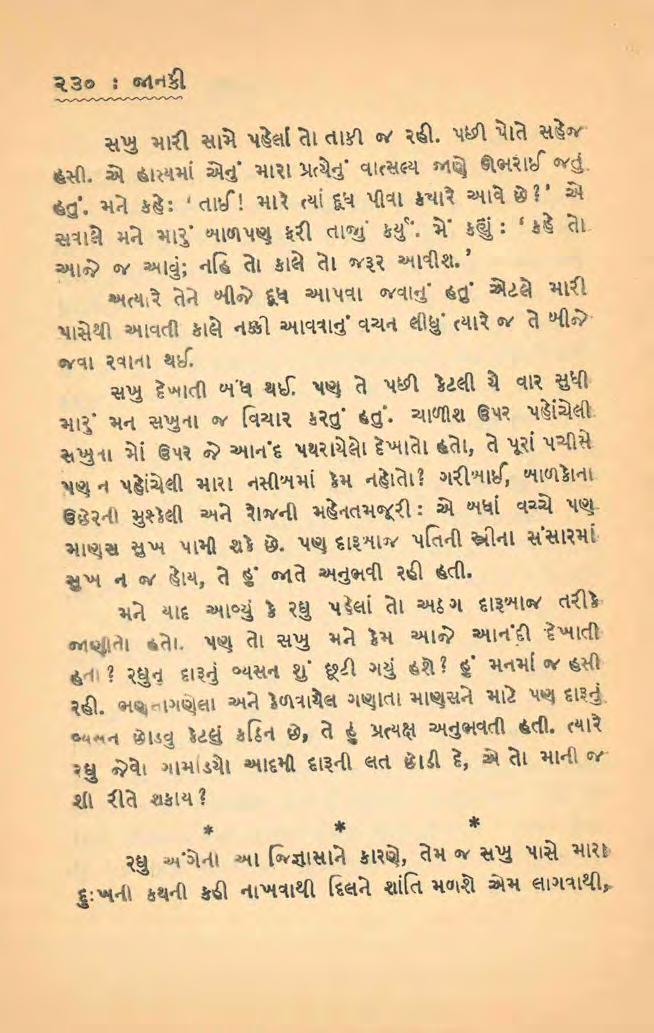 ૨૩૦ : જાનકી
સખુ મારી સામે પહેલાં તો તાકી જ રહી. પછી પોતે સહેજ
હસી. એ હાસ્યમાં એનું મારા પ્રત્યેનું વાત્સલ્ય જાણે ઊભરાઈ જતું
હતું. મને કહે: ‘તાઈ! મારે ત્યાં દૂધ પીવા ક્યારે આવે છે?’ એ
સવાલે મને મારું બાળપણ ફરી તાજું કર્યું. મેં કહ્યું : ‘કહે તો
આજે જ આવું; નહિ તો કાલે તો જરૂર આવીશ.’
અત્યારે તેને બીજે દૂધ આપવા જવાનું હતું એટલે મારી
પાસેથી આવતી કાલે નક્કી આવવાનું વચન લીધું ત્યારે જ તે બીજે
જવા રવાના થઈ.
સખુ દેખાતી બંધ થઈ. પણ તે પછી કેટલી યે વાર સુધી
મારું મન સખુના જ વિચાર કરતું હતું. ચાળીશ ઉપર પહોંચેલી
સખુના મોં ઉપર જે આનંદ પથરાયેલો દેખાતો હતો, તે પૂરાં પચીસે
પણ ન પહોંચેલી મારા નસીબમાં કેમ નહોતો? ગરીબાઈ, બાળકોના
ઉછેરની મુશ્કેલી અને રોજની મહેનતમજૂરી : એ બધાં વચ્ચે પણ
માણસ સુખ પામી શકે છે. પણ દારૂબાજ પતિની સ્ત્રીના સંસારમાં
સુખ ન જ હોય, તે હું જાતે અનુભવી રહી હતી.
મને યાદ આવ્યું કે રઘુ પહેલાં તો અઠંગ દારૂબાજ તરીકે
જાણીતો હતો. પણ તો સખુ મને કેમ આજે આનંદી દેખાતી
હતી? રઘુનું દારૂનું વ્યસન શું છૂટી ગયું હશે? હું મનમાં જ હસી
રહી. ભણતાગણેલા અને કેળવાયેલ ગણાતા માણસને માટે પણ દારૂનું
વ્યસન છોડવુ કેટલું કઠિન છે, તે હું પ્રત્યક્ષ અનુભવતી હતી. ત્યારે
રઘુ જેવો ગામડિયો આદમી દારૂની લત છોડી દે, એ તો માની જ
શી રીતે શકાય?
* * *
રઘુ અંગેની આ જિજ્ઞાસાને કારણે, તેમ જ સખુ પાસે મારા
દુઃખની કથની કહી નાખવાથી દિલને શાંતિ મળશે એમ લાગવાથી,